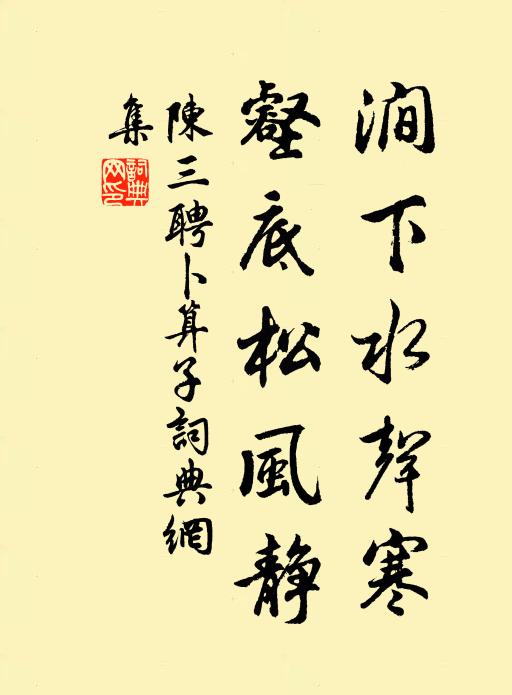 澗下水聲寒
壑底松風静
陳三聘卜算子詞典網
集
詞典
网印